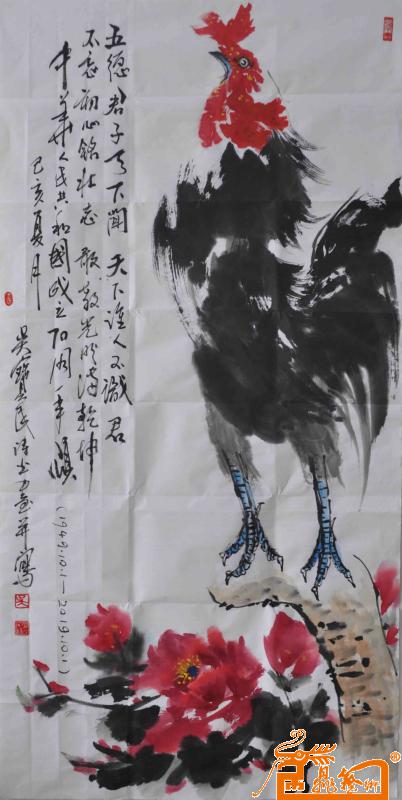 五德君子天下闻 天下谁人不识君
不忘初心铭壮志 歌散光明满乾坤
中华人民共和國成立70周年
己亥夏月
(1949.10.1—2019.10.1)
吴寶民诗书画并寫